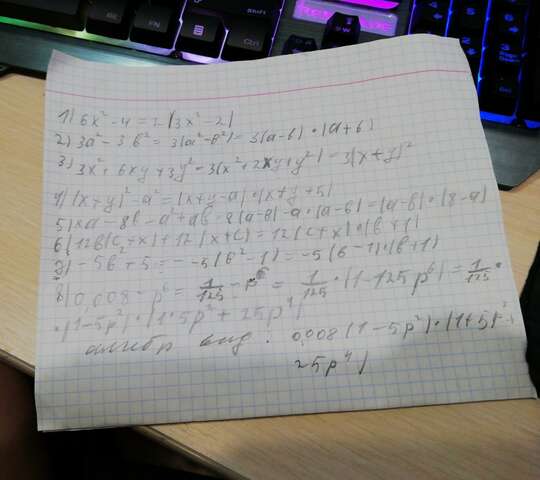 1) 6x² - 4 = 2(3x² - 2)
2) 3a² - 3b² = 3(a² - b²) = 3(a - b) · (a + b)
3) 3x² + 6xy + 3y² = 3(x² + 2xy + y²) = 3(x + y)²
4) (x + y)² - a² = (x + y - a) · (x + y + 5)
5) xa - 8b - a² + ab = 8(a - b) - a · (a - b) = (a - b) · (8 - a)
6) 12b(c + x) + 12(x + c) = 12(c + x) · (b + 1)
7) - 5b² + 5 = - 5(b² - 1) = -5(b - 1) · (b + 1)
8) 0,008 - p⁶ = 1/125 - p⁶ = 1/125 · (1 - 125p⁶) = 1/125 ·
· (1 - 5p²) · (1 + 5p² + 25p⁴)
алгебр вид : 0,008 (1 - 5p²) · (1 + 5p² +
25p⁴)
Shift
Fn
Ctrl